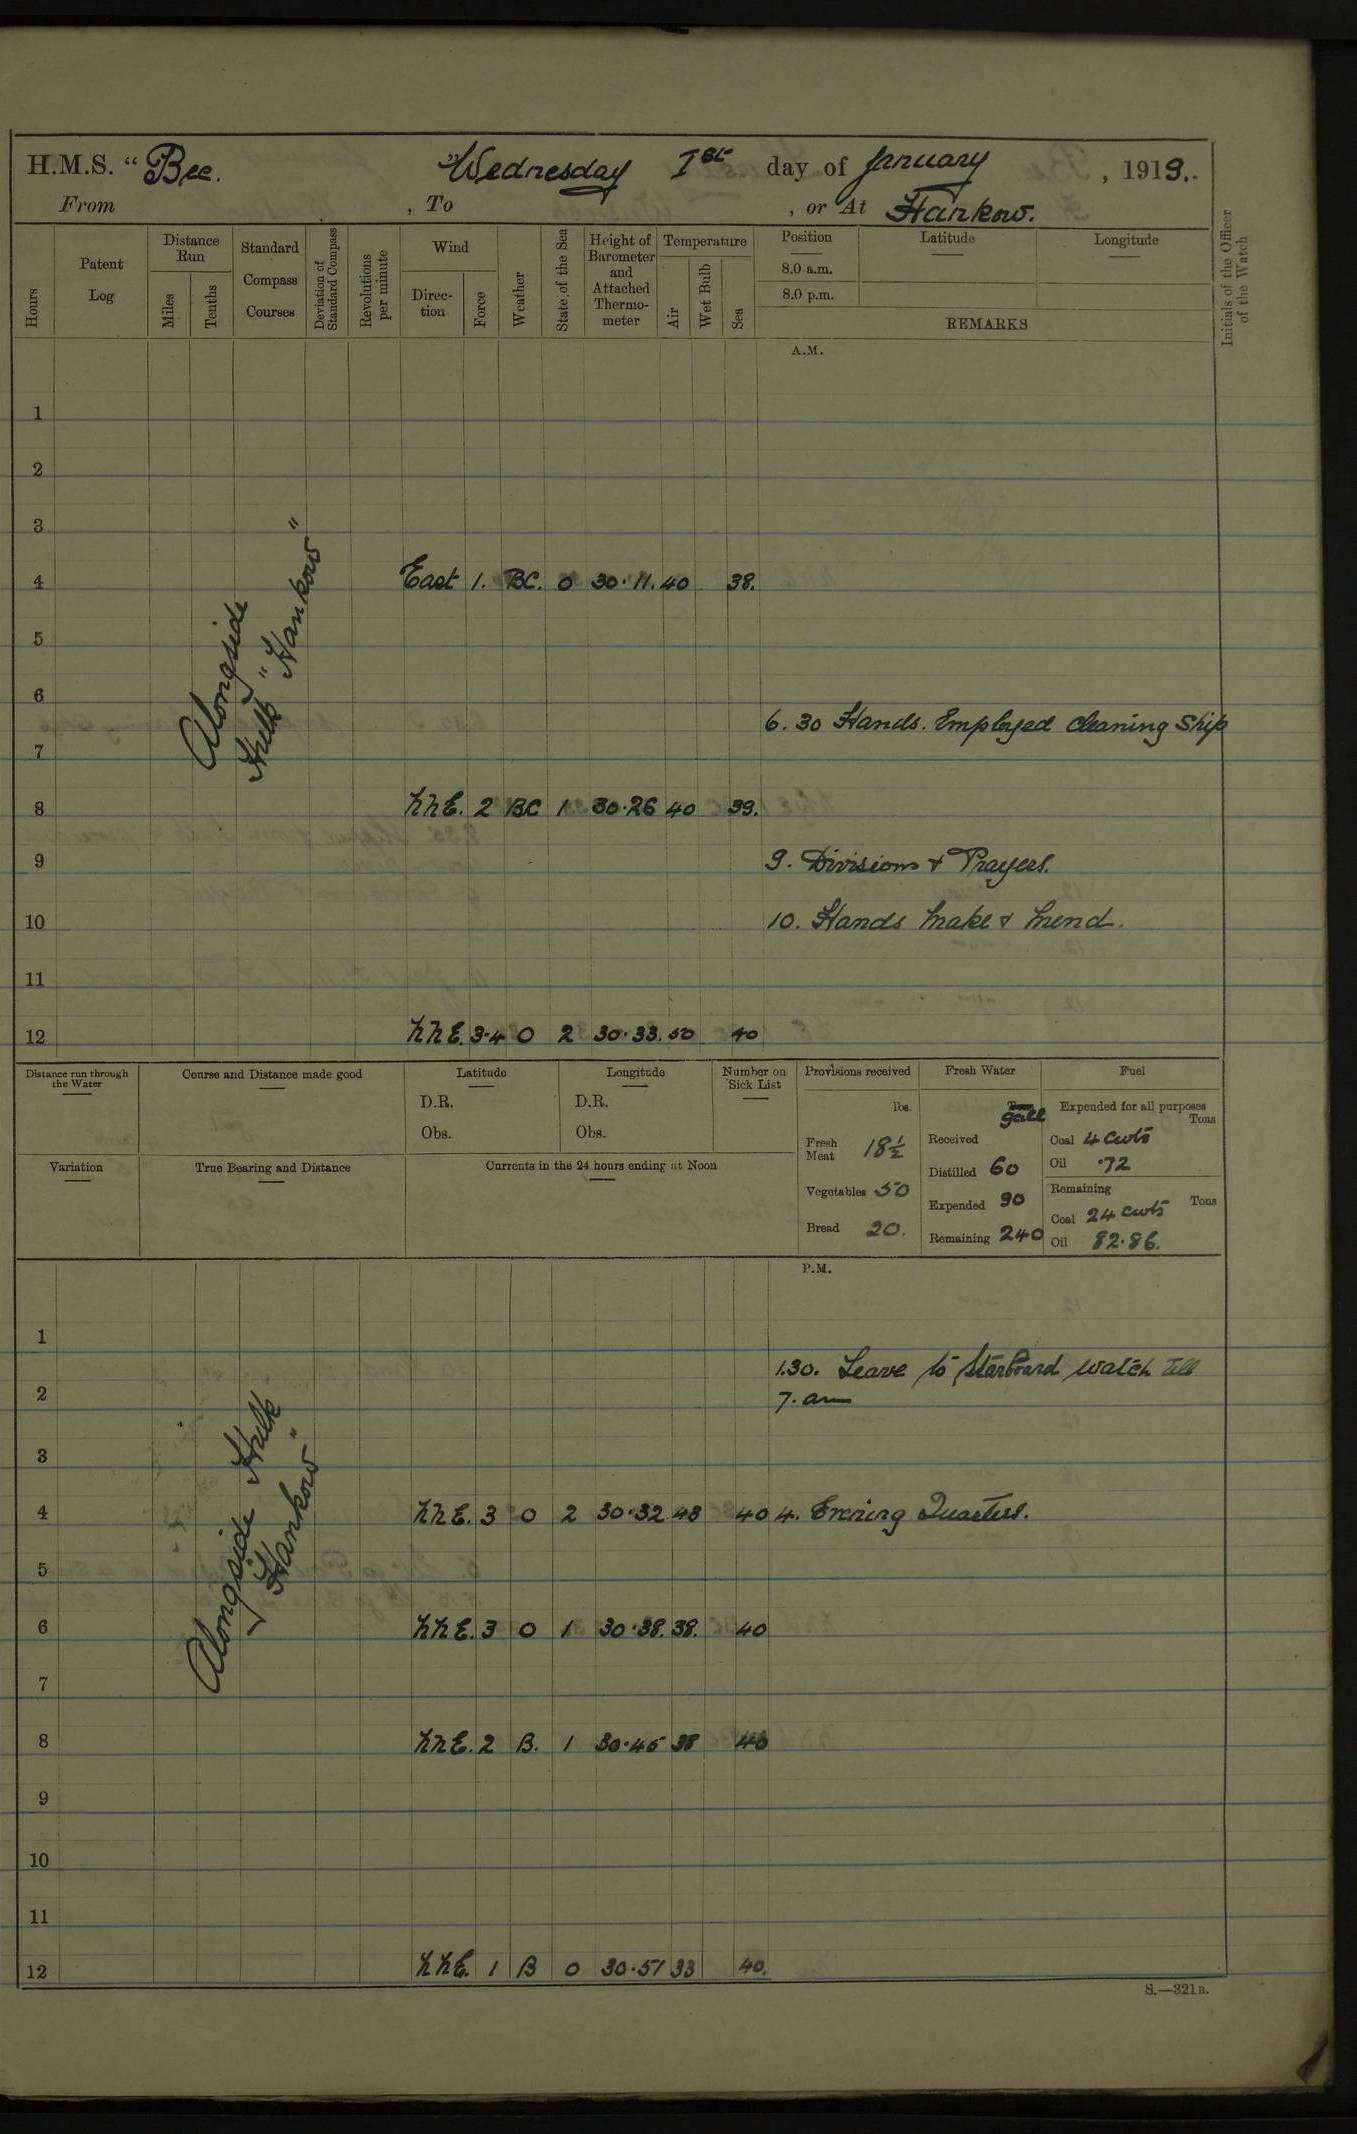 H.M.S. “ Bee. ” Wednesday 1st day of January , 1919.
From , To , or At Hankow.
Hours
Patent Log
Distance Run
Miles
Tenths
Standard Compass Courses
Deviation of Standard Compass
Revolutions per minute
Wind
Direc-tion
Force
Weather
State of the Sea
Height of Barometer and Attached Thermo-meter
Temperature
Air
Wet Bulb
Sea
Position
Latitude
Longitude
8.0 a.m.
8.0 p.m.
REMARKS
Initials of the Officer of the Watch
A.M.
1
2
3
4 East 1. BC. 0 30.11. 40 38.
5
6
6.30 Hands. Employed cleaning Ship
7
Alongside
Hulk "Hankow"
8 NNE. 2 BC 1 30.26 40 39.
9 9. Divisions & Prayers.
10 10. Hands Make & Mend.
11
12 NNE. 3.4 O 2 30.33. 50 40
Distance run through the Water
Course and Distance made good
Latitude
D.R.
Obs.
Longitude
D.R.
Obs.
Number on Sick List
Variation
True Bearing and Distance
Currents in the 24 hours ending at Noon
Provisions received
lbs.
Fresh Meat 18½
Vegetables 50
Bread 20.
Fresh Water
Tons
gall
Received
Distilled 60
Expended 90
Remaining 240
Fuel
Expended for all purposes
Tons
Coal 4 cwts
Oil .72
Remaining
Tons
Coal 24 cwts
Oil 82.86.
P.M.
1
1.30. Leave to Starboard watch till
2 7. am
3
4 NNE. 3 O 2 30.32 43 40 4. Evening Quarters.
5
6 NNE. 3 O 1 30.38. 38. 40
7
Alongside Hulk
"Hankow"
8 NNE. 2 B. 1 30.45 38 40
9
10
11
12 NNE. 1 B 0 30.51 33 40.
S.—321B.